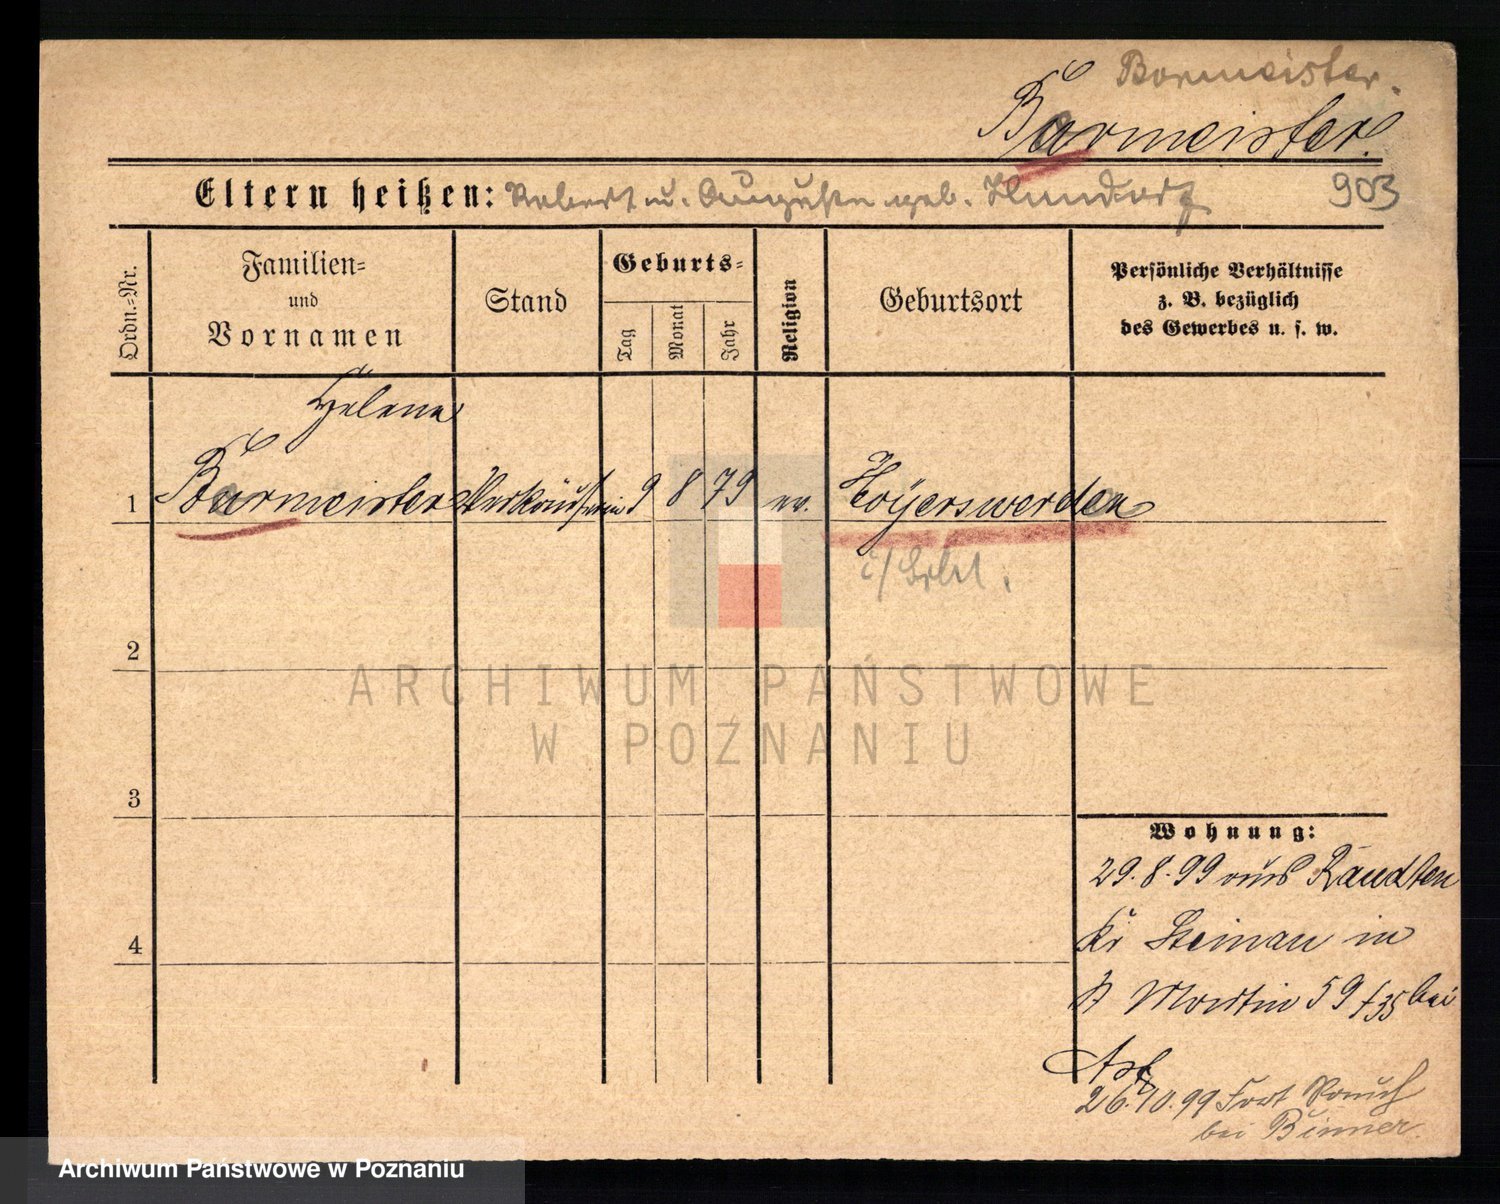 Bormeister.
Bormeister.
Eltern heißen: Robert u. Auguste geb. Hundorf
903
Ordn.-Nr.
Familien-
und
Vornamen
Stand
Geburts-
Tag
Monat
Jahr
Religion
Geburtsort
Persönliche Verhältnisse
z. B. bezüglich
des Gewerbes u. s. w.
Helene
1 Bormeister Verkäuferin 9 8 79 ev. Hoyerswerden
2
ARCHIWUM PAŃSTWOWE
W POZNANIU
3
Wohnung:
29.8.99 aus Raudten
Kr Steinau in
4
St Martin 59 f 35 bei
Ast
26.10.99 Fort
bei Binner.
Archiwum Państwowe w Poznaniu